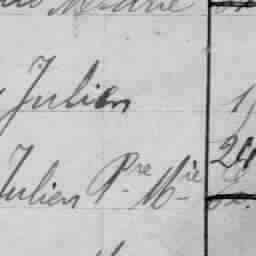 Marie
Julien
24
Julien Pre Mie